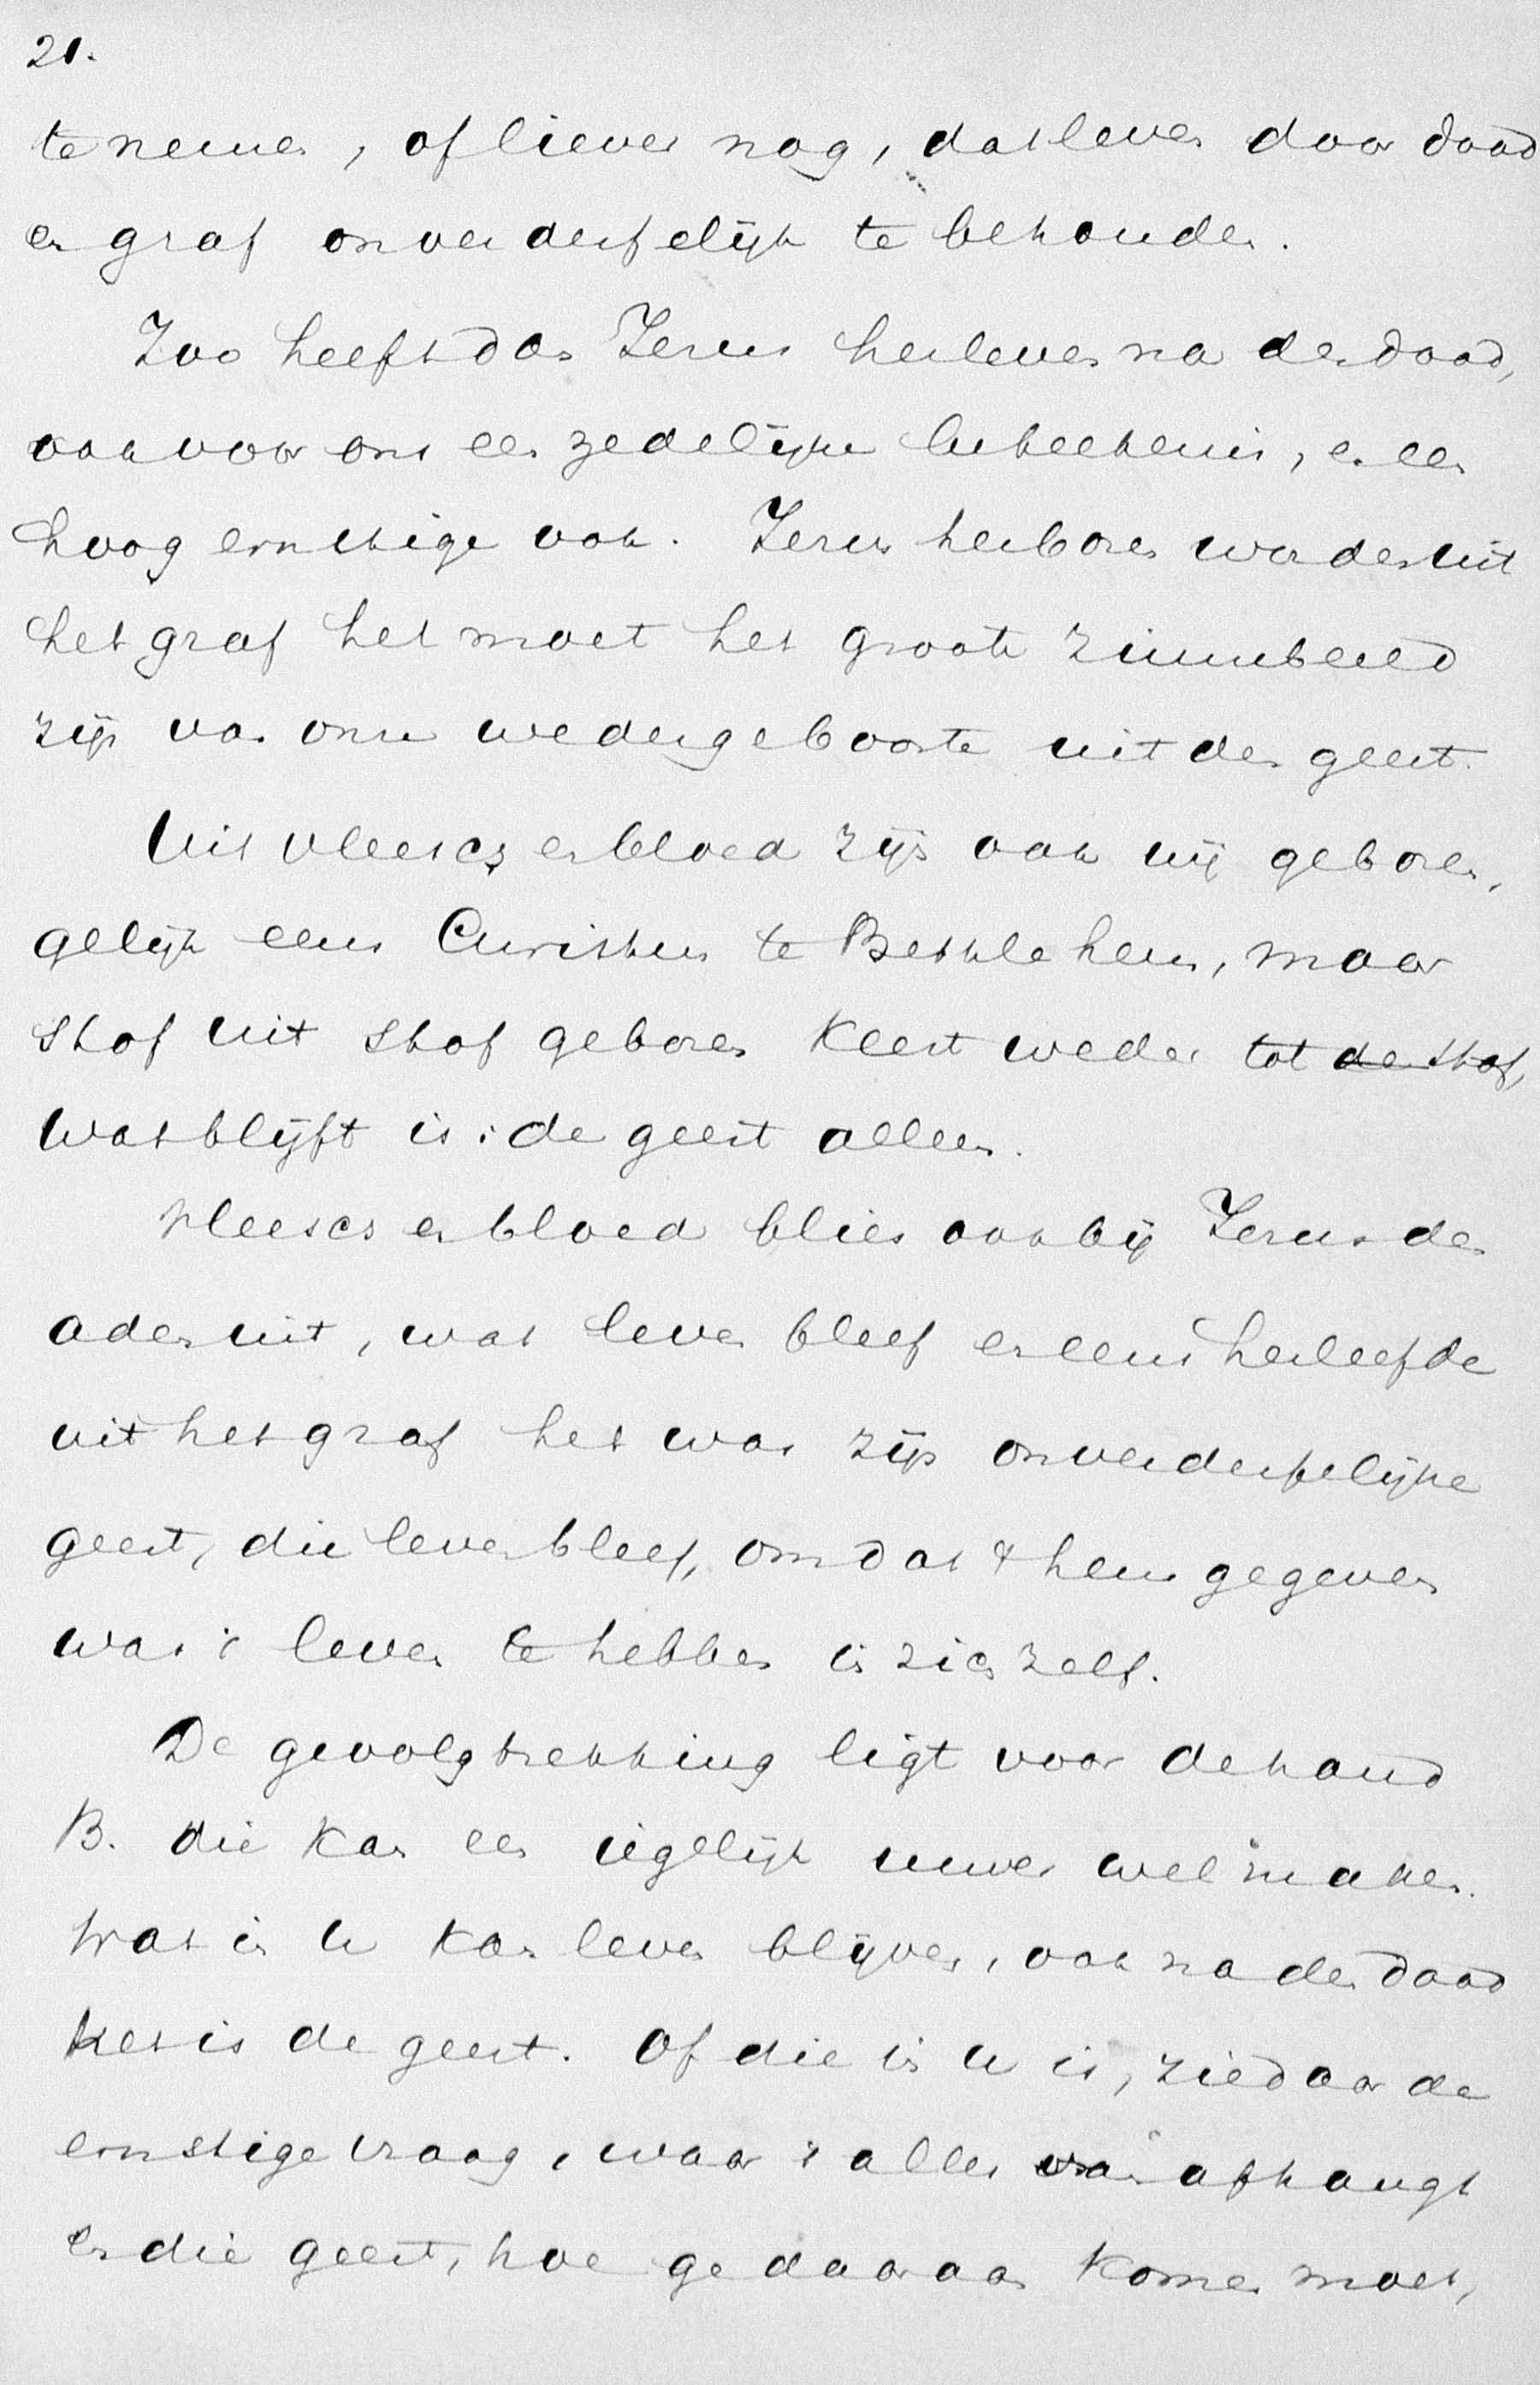 21.
te nemen, of liever nog, dat leven door dood
en graf onverderfelijk te behouden.
Zoo heeft dan Jezus herleven na den dood,
ook voor ons een zedelijke beteekenis, en een
hoog ernstige ook. Jezus herboren worden uit
het graf het moet het groote zinnebeeld
zijn van onze wedergeboorte uit den geest.
Uit vleesch en bloed zijn ook wij geboren,
gelijk eens Christus te Bethlehem, maar
stof uit stof geboren keert weder tot de stof,
wat blijft is: de geest alleen.
Vleesch en bloed blies ook bij Jezus den
adem uit, wat leven bleef en eens herleefde
uit het graf het was zijn onverderfelijke
geest, die leven bleef, omdat 't hem gegeven
was 't leven te hebben in zich zelf.
De gevolgtrekking ligt voor de hand
B. die kan een iegelijk uwer wel maken.
Wat in U kan leven blijven, ook na den dood
het is de geest. Of die in U is, ziedaar de
ernstige vraag, waar 't alles van afhangt
en die geest, hoe ge daaraan komen moet,